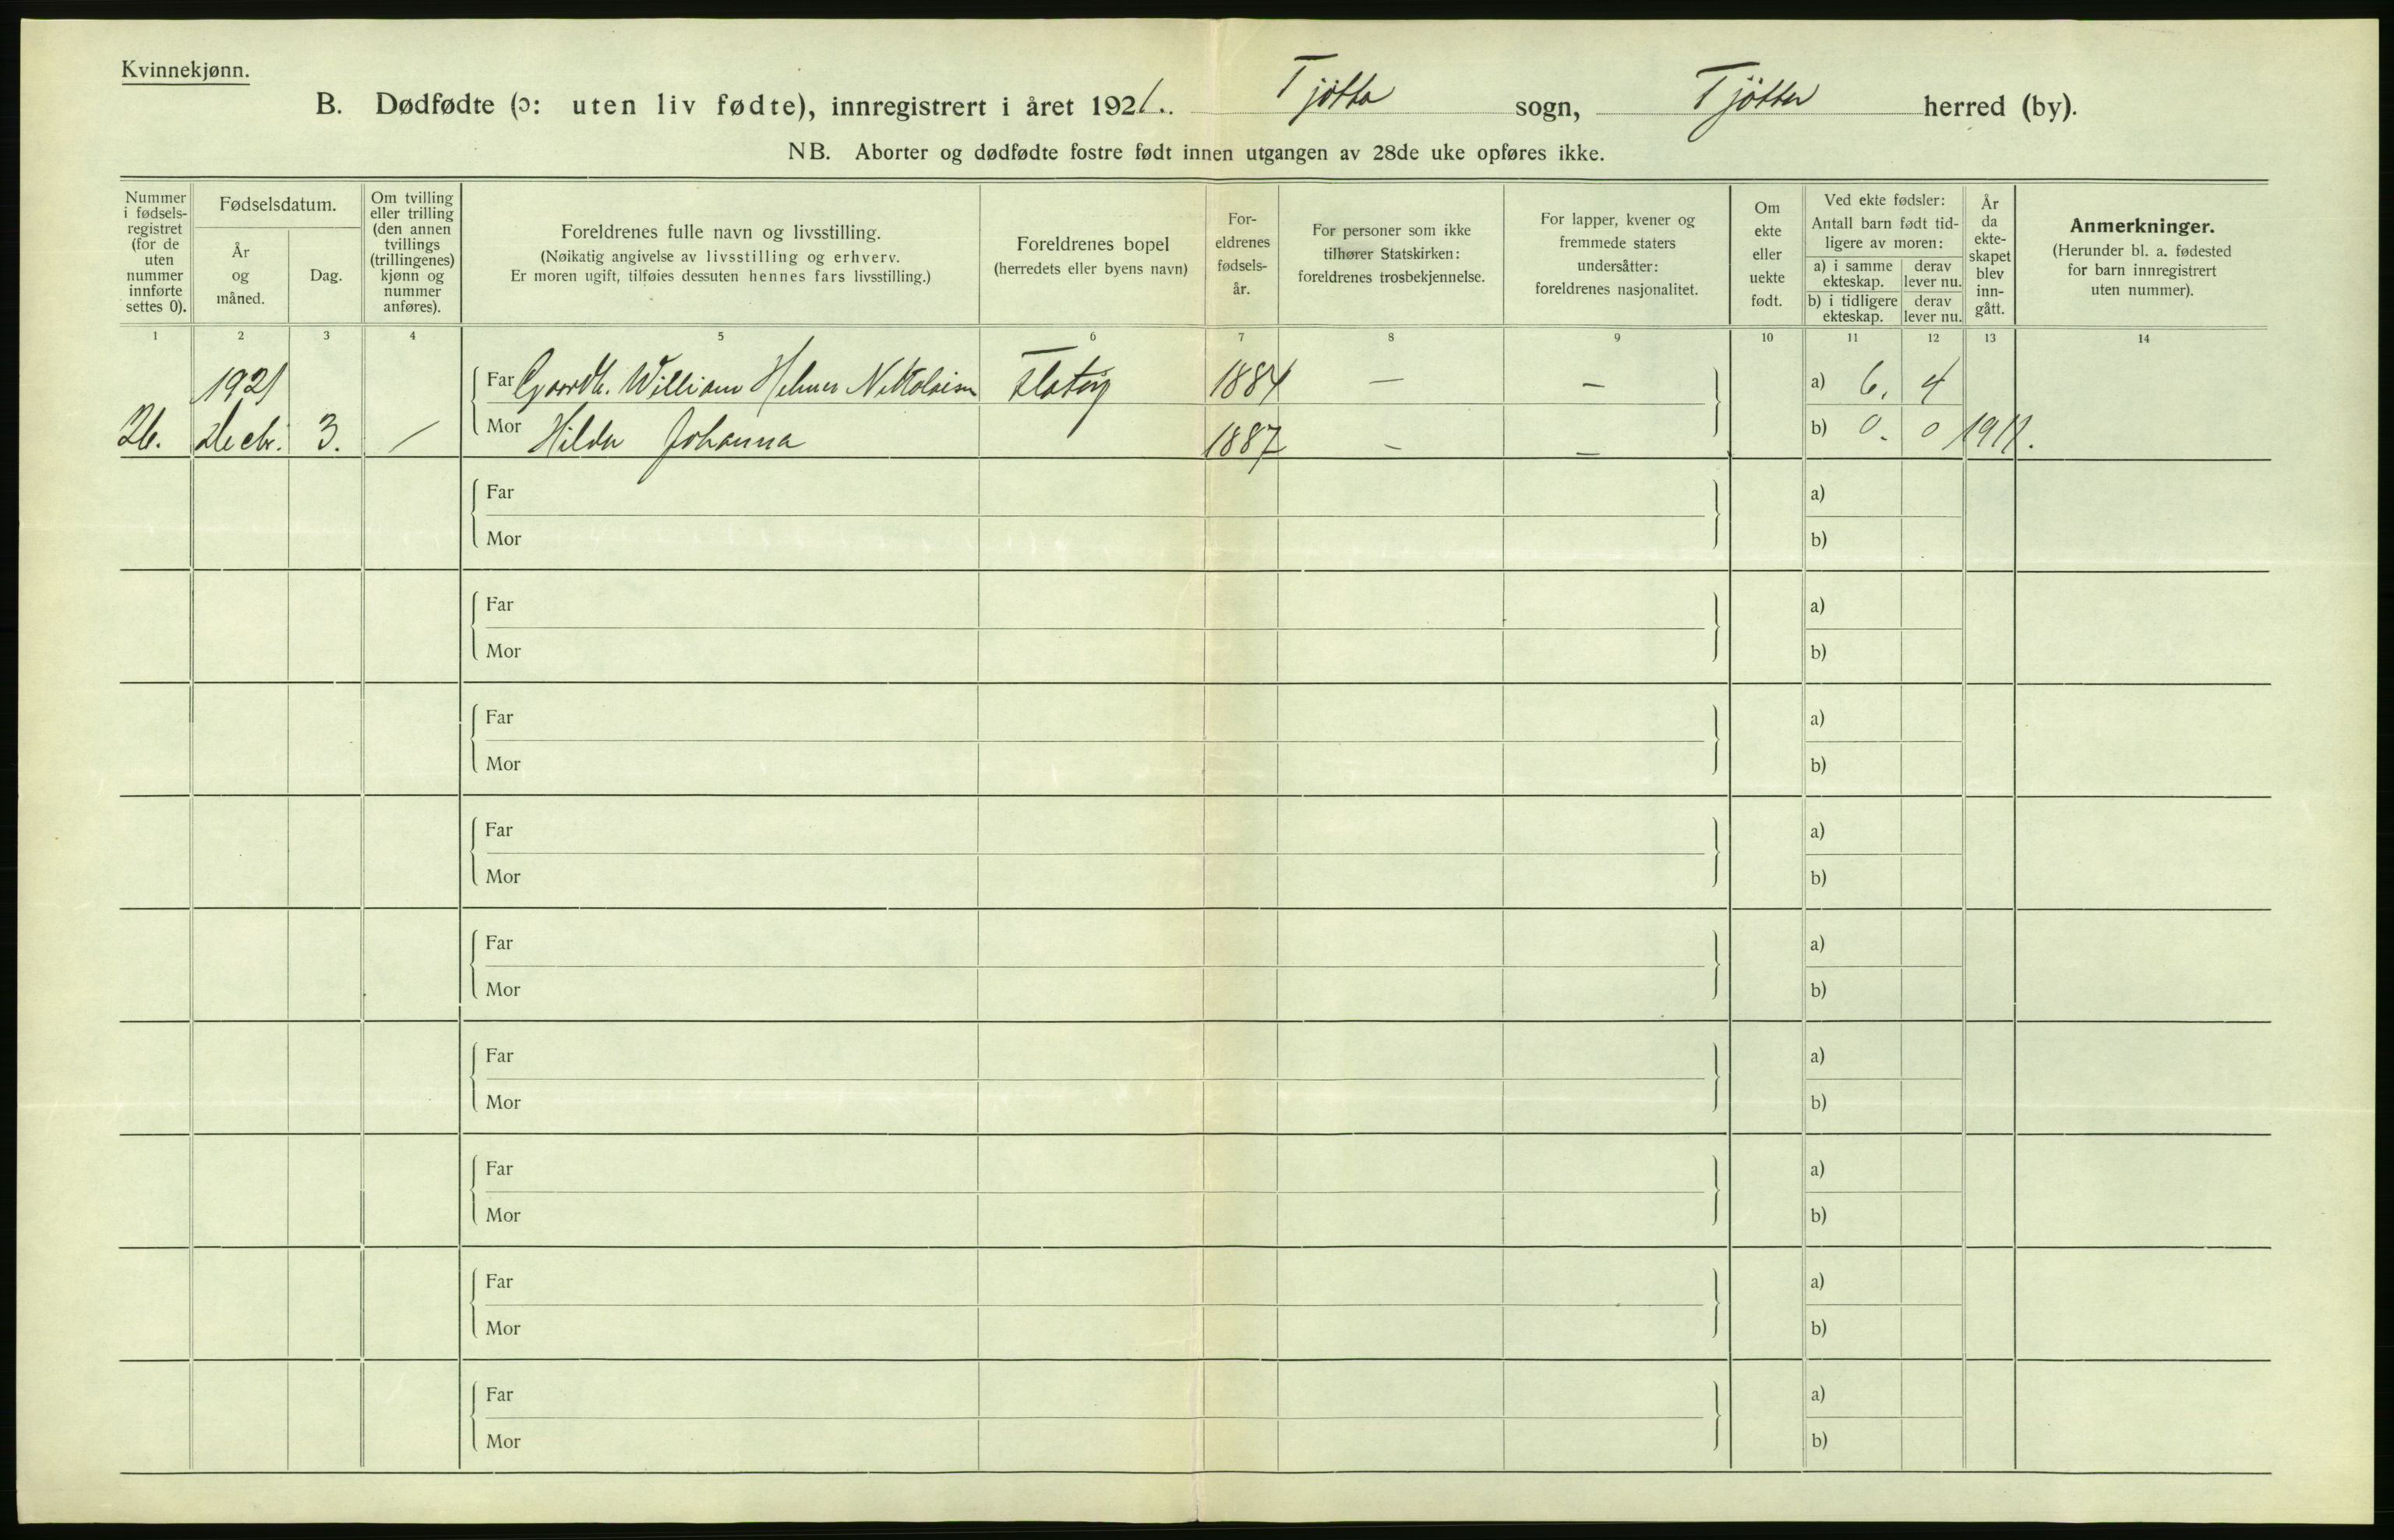 Kvinnekjønn.
B. Dødfødte (ɔ: uten liv fødte), innregistrert i året 1921. Tjøtta sogn, Tjøtta herred (by).
NB. Aborter og dødfødte fostre født innen utgangen av 28de uke opføres ikke.
Nummer i fødsels-registret (for de uten nummer innførte settes 0).
Fødselsdatum.
År og måned.
Dag.
Om tvilling eller trilling (den annen tvillings (trillingenes) kjønn og nummer anføres).
Foreldrenes fulle navn og livsstilling.
(Nøikatig angivelse av livsstilling og erhverv.
Er moren ugift, tilføies dessuten hennes fars livsstilling.)
Foreldrenes bopel
(herredets eller byens navn)
For-eldrenes fødsels-år.
For personer som ikke tilhører Statskirken: foreldrenes trosbekjennelse.
For lapper, kvener og fremmede staters undersåtter: foreldrenes nasjonalitet.
Om ekte eller uekte født.
Ved ekte fødsler:
Antall barn født tid-ligere av moren:
a) i samme ekteskap. derav lever nu.
b) i tidligere ekteskap. derav lever nu.
År da ekte-skapet blev inn-gått.
Anmerkninger.
(Herunder bl. a. fødested for barn innregistrert uten nummer).
1 2 3 4 5 6 7 8 9 10 11 12 13 14
1921 Far Gaardbr. William Helmer Nikolaisen 1884 — — a) 6. 4
26. Decbr. 3. / Mor Hilda Johanna 1887 — — b) 0. 0
Far a)
Mor b)
Far a)
Mor b)
Far a)
Mor b)
Far a)
Mor b)
Far a)
Mor b)
Far a)
Mor b)
Far a)
Mor b)
Far a)
Mor b)
Far a)
Mor b)